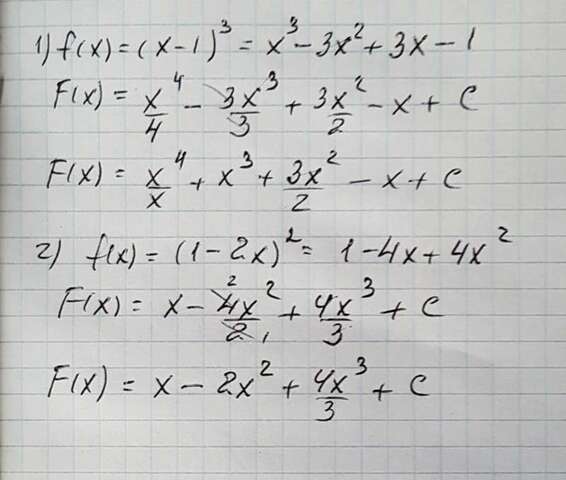 1) f(x) = (x-1)³ = x³ - 3x² + 3x - 1
F(x) = x⁴/4 - 3x³/3 + 3x²/2 - x + C
F(x) = x⁴/x + x³ + 3x²/2 - x + C
2) f(x) = (1-2x)² = 1-4x+4x²
F(x) = x - 4x²/2 + 4x³/3 + C
F(x) = x - 2x² + 4x³/3 + C